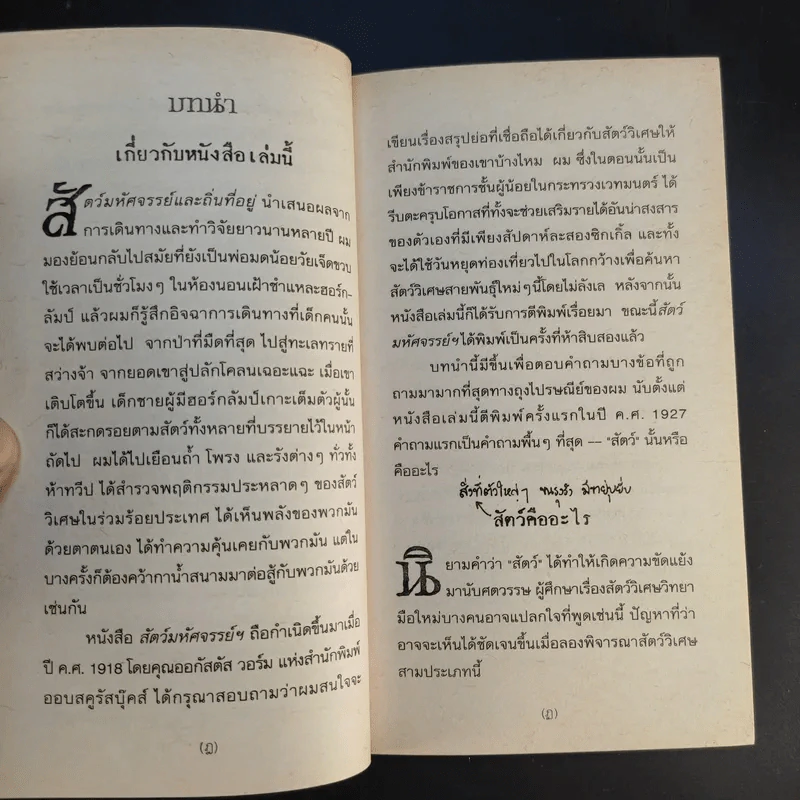 บทนำ
เกี่ยวกับหนังสือเล่มนี้
สัตว์มหัศจรรย์และถิ่นที่อยู่ นำเสนอผลจาก
การเดินทางและทำวิจัยยาวนานหลายปี ผม
มองย้อนกลับไปสมัยที่ยังเป็นพ่อมดน้อยวัยเจ็ดขวบ
ใช้เวลาเป็นชั่วโมงๆ ในห้องนอนเฝ้าชำแหละฮอร์ก-
ลัมป์ แล้วผมก็รู้สึกอิจฉาการเดินทางที่เด็กคนนั้น
จะได้พบต่อไป จากป่าที่มืดที่สุด ไปสู่ทะเลทรายที่
สว่างจ้า จากยอดเขาสู่ปลักโคลนเฉอะแฉะ เมื่อเขา
เติบโตขึ้น เด็กชายผู้มีฮอร์กลัมป์เกาะเต็มตัวผู้นั้น
ก็ได้สะกดรอยตามสัตว์ทั้งหลายที่บรรยายไว้ในหน้า
ถัดไป ผมได้ไปเยือนถ้ำ โพรง และรังต่างๆ ทั่วทั้ง
ห้าทวีป ได้สำรวจพฤติกรรมประหลาดๆ ของสัตว์
วิเศษในร่วมร้อยประเทศ ได้เห็นพลังของพวกมัน
ด้วยตาตนเอง ได้ทำความคุ้นเคยกับพวกมัน แต่ใน
บางครั้งก็ต้องคว้ากาน้ำสนามมาต่อสู้กับพวกมันด้วย
เช่นกัน
หนังสือ สัตว์มหัศจรรย์ฯ ถือกำเนิดขึ้นมาเมื่อ
ปี ค.ศ. 1918 โดยคุณออกัสตัส วอร์ม แห่งสำนักพิมพ์
ออบสคูรัสบุ๊คส์ ได้กรุณาสอบถามว่าผมสนใจจะ
(ฎ)
เขียนเรื่องสรุปย่อที่เชื่อถือได้เกี่ยวกับสัตว์วิเศษให้
สำนักพิมพ์ของเขาบ้างไหม ผม ซึ่งในตอนนั้นเป็น
เพียงข้าราชการชั้นผู้น้อยในกระทรวงเวทมนตร์ ได้
รีบตะครุบโอกาสที่ทั้งจะช่วยเสริมรายได้อันน่าสงสาร
ของตัวเองที่มีเพียงสัปดาห์ละสองซิกเกิ้ล และทั้ง
จะได้ใช้วันหยุดท่องเที่ยวไปในโลกกว้างเพื่อค้นหา
สัตว์วิเศษสายพันธุ์ใหม่ๆนี้โดยไม่ลังเล หลังจากนั้น
หนังสือเล่มนี้ก็ได้รับการตีพิมพ์เรื่อยมา ขณะนี้สัตว์
มหัศจรรย์ฯได้พิมพ์เป็นครั้งที่ห้าสิบสองแล้ว
บทนำนี้มีขึ้นเพื่อตอบคำถามบางข้อที่ถูก
ถามมามากที่สุดทางถุงไปรษณีย์ของผม นับตั้งแต่
หนังสือเล่มนี้ตีพิมพ์ครั้งแรกในปี ค.ศ. 1927
คำถามแรกเป็นคำถามพื้นๆ ที่สุด -- "สัตว์" นั้นหรือ
คืออะไร
สิ่งที่ตัวใหญ่ๆ ขนรุงรัง
สัตว์คืออะไร
นิยามคำว่า "สัตว์" ได้ทำให้เกิดความขัดแย้ง
มานับศตวรรษ ผู้ศึกษาเรื่องสัตว์วิเศษวิทยา
มือใหม่บางคนอาจแปลกใจที่พูดเช่นนี้ ปัญหาที่ว่า
อาจจะเห็นได้ชัดเจนขึ้นเมื่อลองพิจารณาสัตว์วิเศษ
สามประเภทนี้
(ฏ)